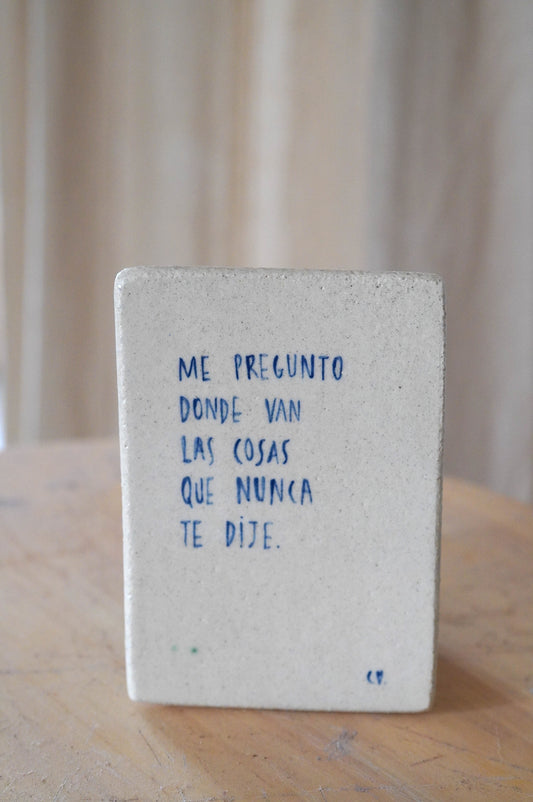 ME PREGUNTO
DONDE VAN
LAS COSAS
QUE NUNCA
TE DIJE.